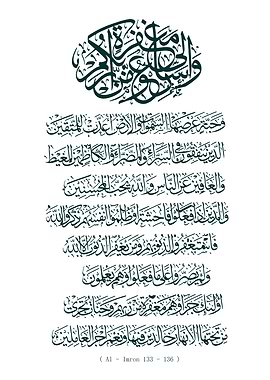 وسارعوا إلى مغفرة من ربكم
وجنة عرضها السموات والأرض أعدت للمتقين
الذين ينفقون في السراء والضراء والكاظمين الغيظ
والعافين عن الناس والله يحب المحسنين
والذين إذا فعلوا فاحشة أو ظلموا أنفسهم ذكروا الله
فاستغفروا لذنوبهم ومن يغفر الذنوب إلا الله
ولم يصروا على ما فعلوا وهم يعلمون
أولئك جزاؤهم مغفرة من ربهم وجنات تجري
من تحتها الأنهار خالدين فيها ونعم أجر العاملين
( Al - Imron 133 - 136 )